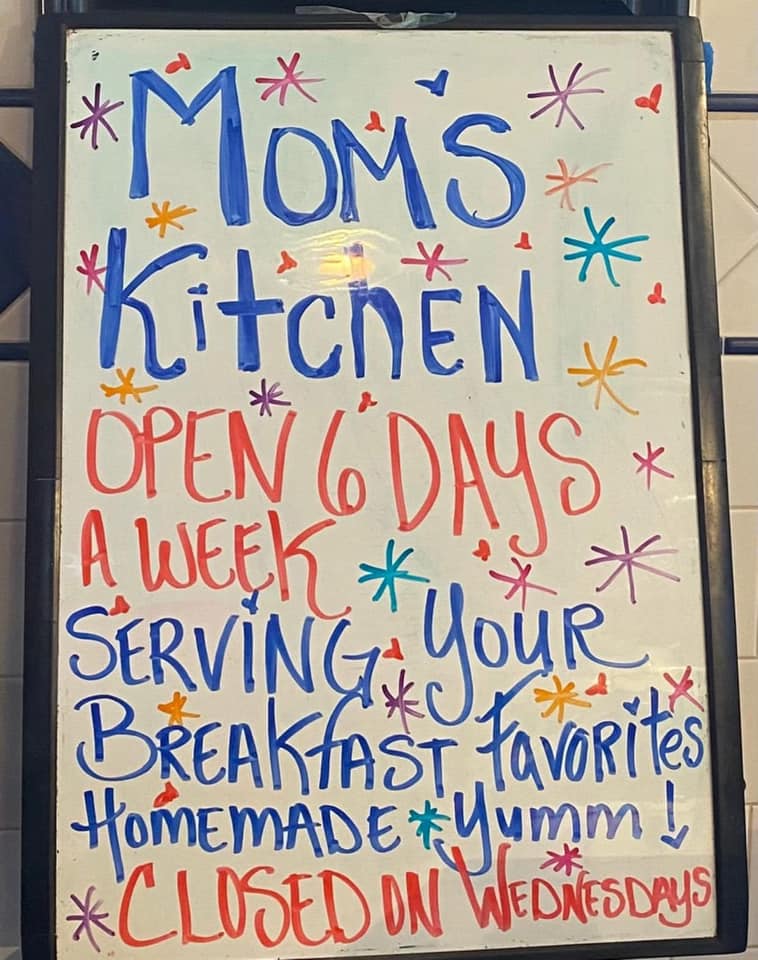 MOM'S
KitchEN
OPEN 6 DAYS
A WEEK
SERVING YOUR
BREAKfAST FAVORitES
HOMEMADE * Yumm!
CLOSED ON WEDNESDAYS